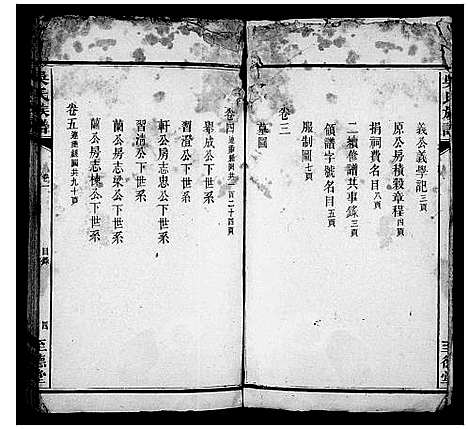 義公義學記三頁
原公房積穀章程四頁
捐祠費名目八頁
二續修譜其事錄三頁
領譜字號名目五頁
服制圖七頁
卷三
墓圖
卷四連垂絲圖共一百二十四頁
舉成公下世系
習澄公下世系
軒公房志忠公下世系
習清公下世系
蘭公房志梁公下世系
蘭公房志棟公下世系
卷五連垂絲圖共九十頁
吳氏族譜
卷一
目錄
四
至德堂